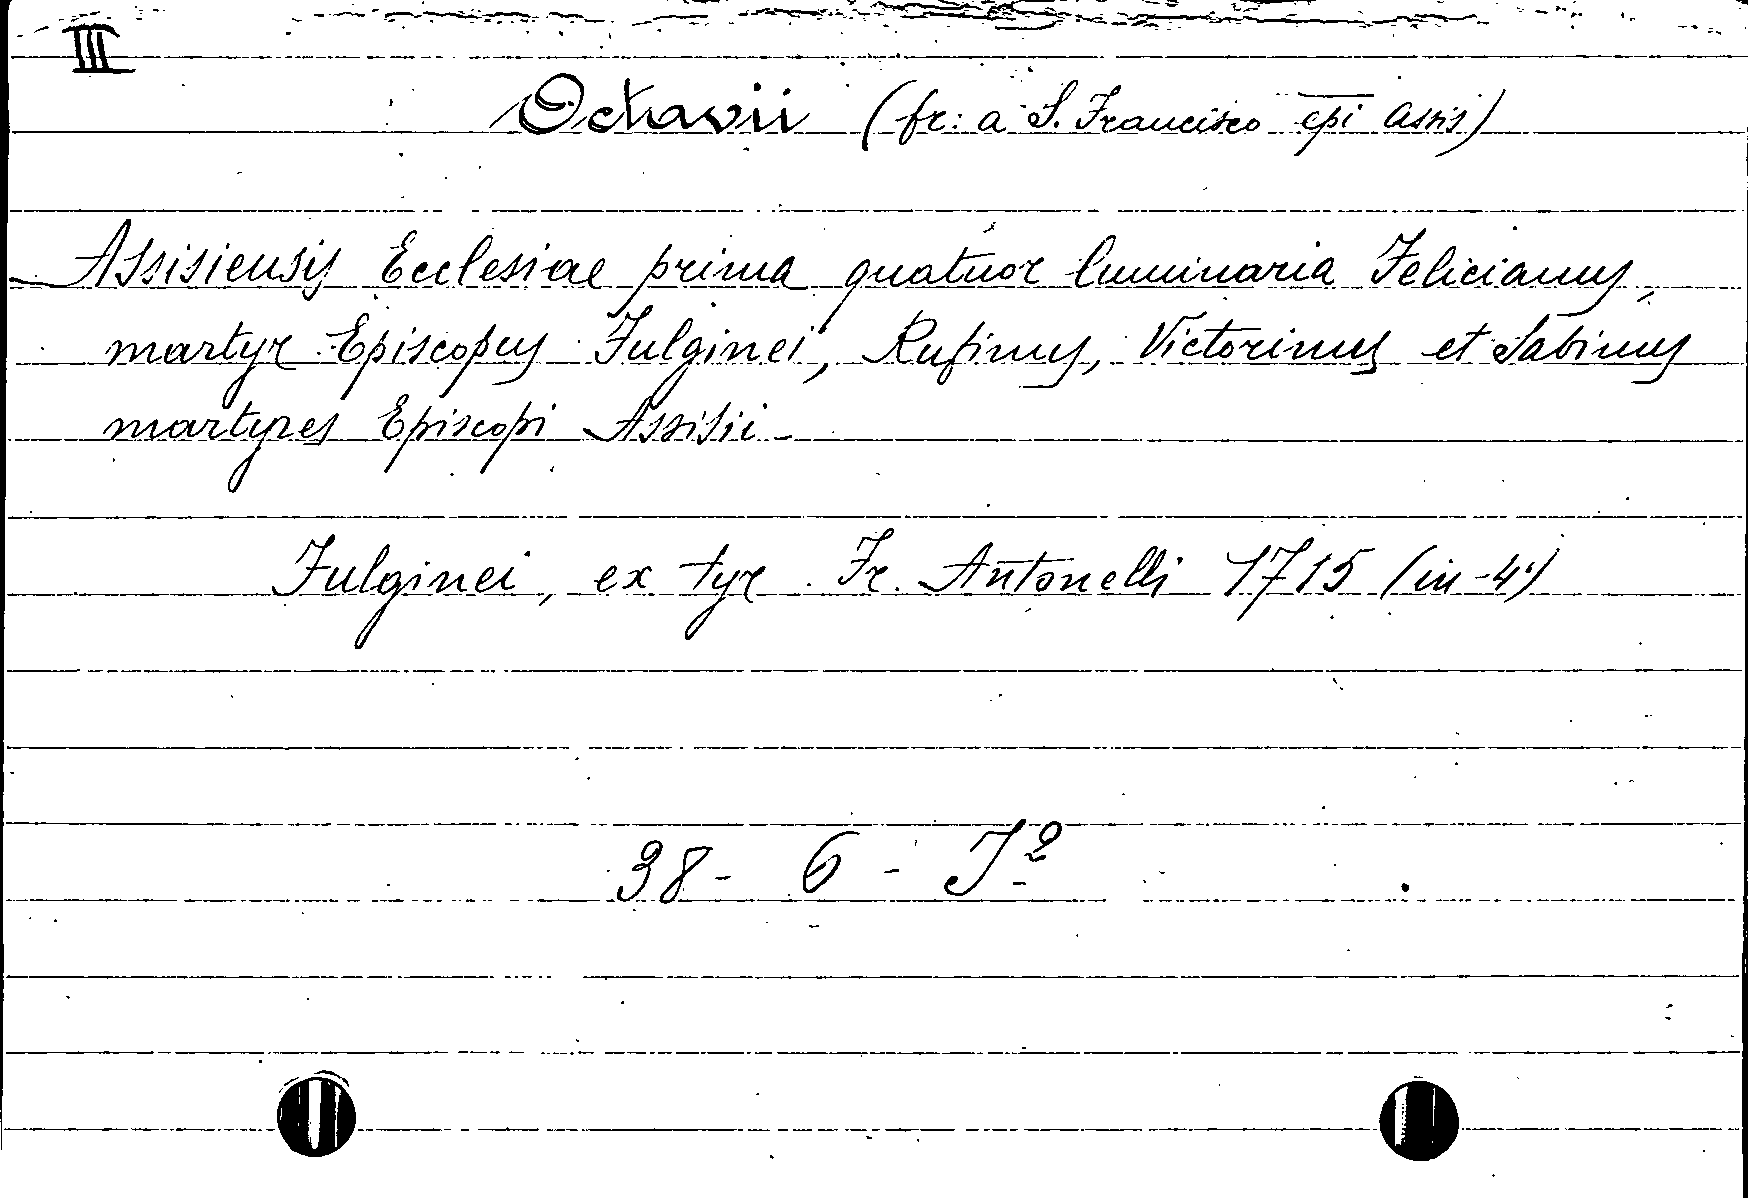 III
Octavii (fr: a S. Francisco epi Assis)
Assisiensis Ecclesiae prima quatuor luminaria Felicianus,
martyr Episcopus Fulginei, Rufinus, Victorinus et Sabinus
martyres Episcopi Assisii -
Fulginei, ex tyr. Fr. Antonelli 1715 (in-4°)
38 - 6 - J°